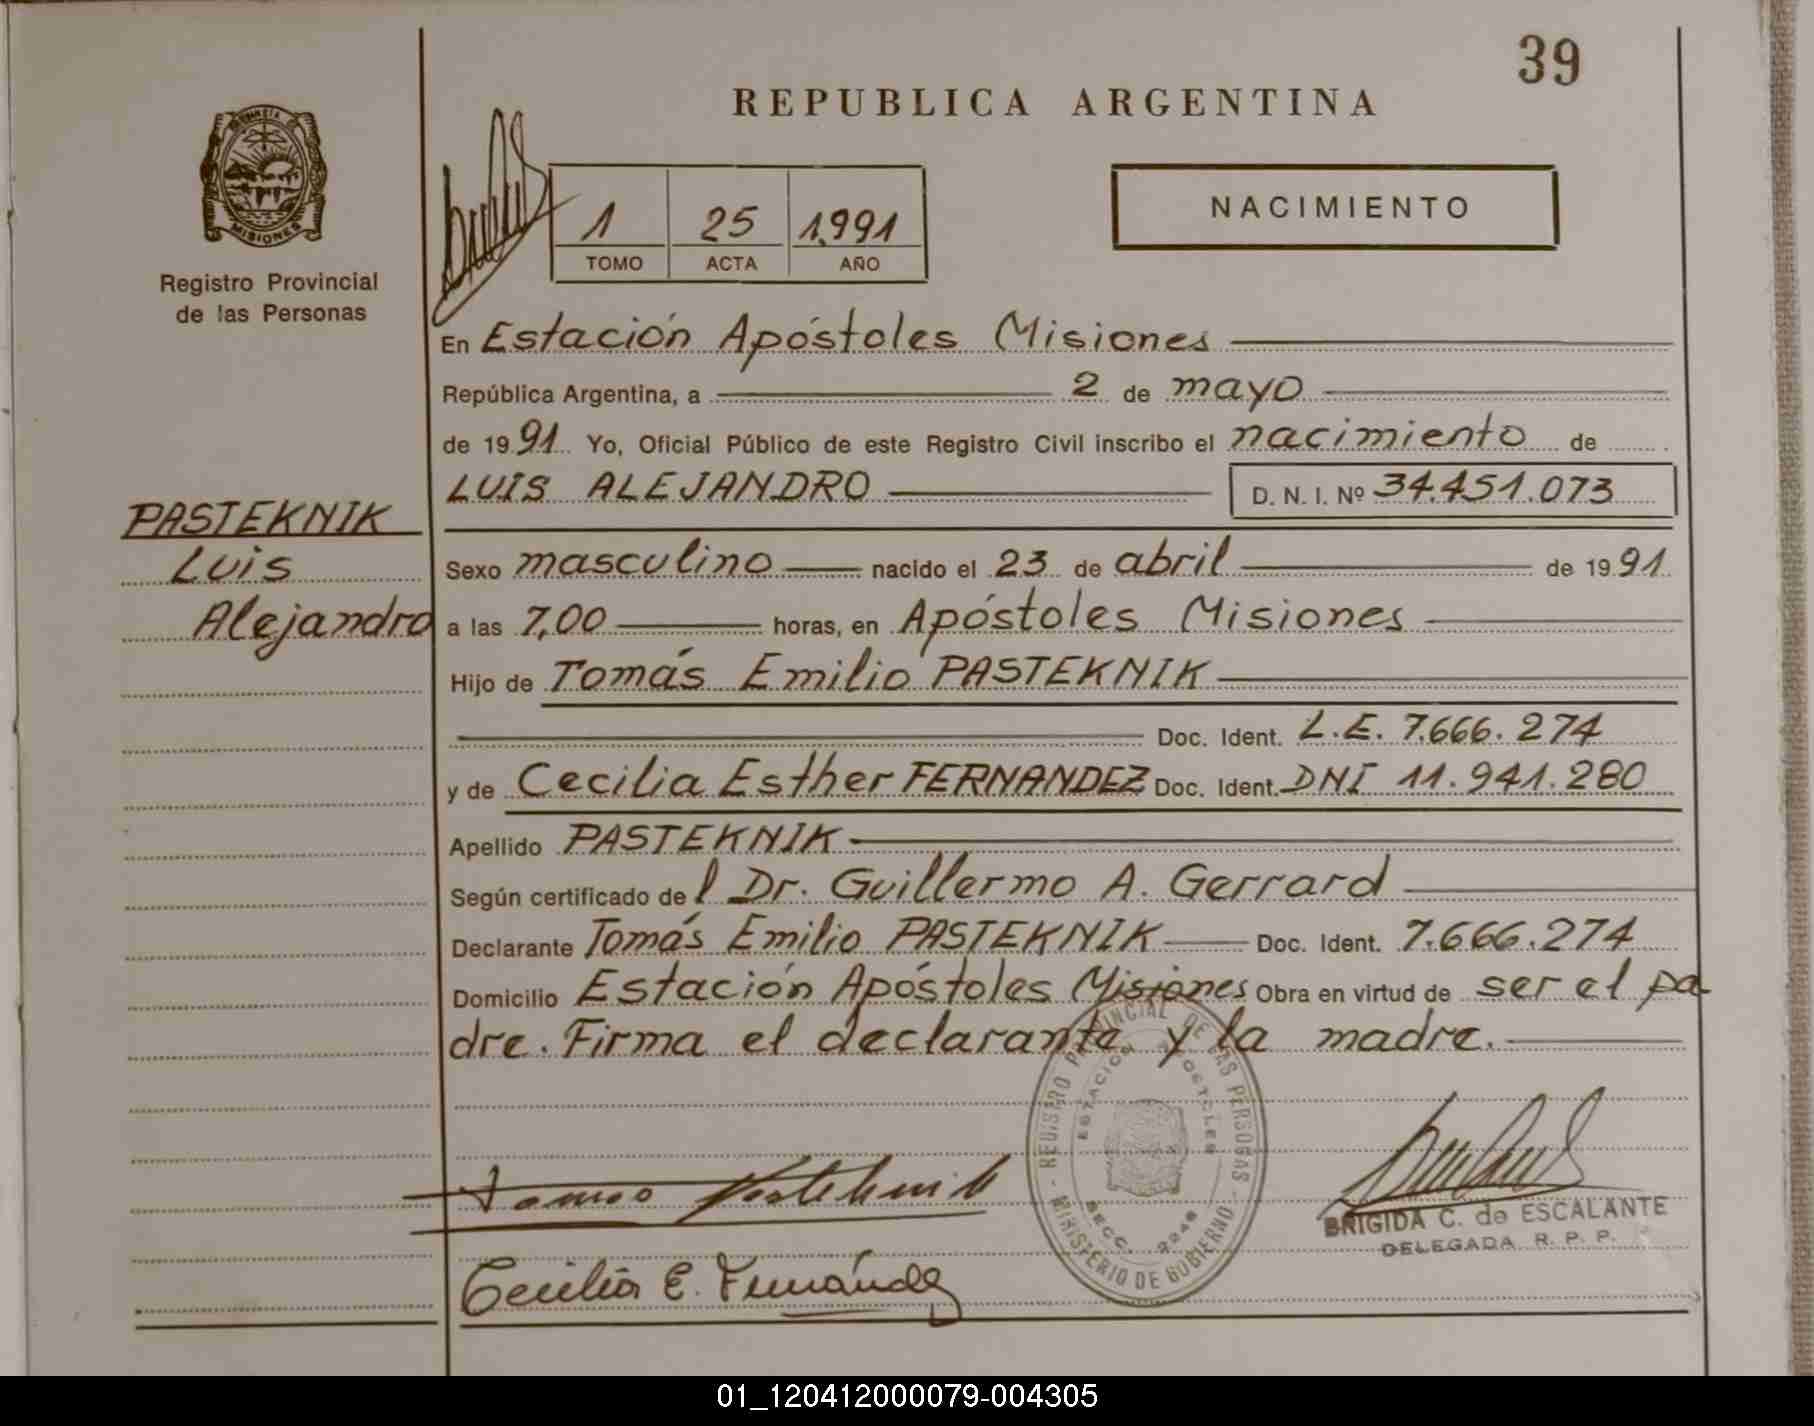 39
REPUBLICA ARGENTINA
MISIONES
Registro Provincial
de las Personas
1 25 1.991
TOMO ACTA AÑO
NACIMIENTO
En Estación Apóstoles Misiones
República Argentina, a 2 de mayo
de 1991 Yo, Oficial Público de este Registro Civil inscribo el nacimiento de
LUIS ALEJANDRO D. N. I. Nº 34.451.073
PASTEKNIK
Luis
Alejandro
Sexo masculino nacido el 23 de abril de 1991
a las 7,00 horas, en Apóstoles Misiones
Hijo de Tomás Emilio PASTEKNIK
Doc. Ident. L.E. 7.666.274
y de Cecilia Esther FERNANDEZ Doc. Ident. DNI 11.941.280
Apellido PASTEKNIK
Según certificado de l Dr. Guillermo A. Gerrard
Declarante Tomás Emilio PASTEKNIK Doc. Ident. 7.666.274
Domicilio Estación Apóstoles Misiones Obra en virtud de ser el pa
dre. Firma el declarante y la madre.
REGISTRO PROVINCIAL DE LAS PERSONAS
MINISTERIO DE GOBIERNO
Tomas Pasteknik
Cecilia E. Fernández
BRIGIDA C. de ESCALANTE
DELEGADA R. P. P.
01_120412000079-004305